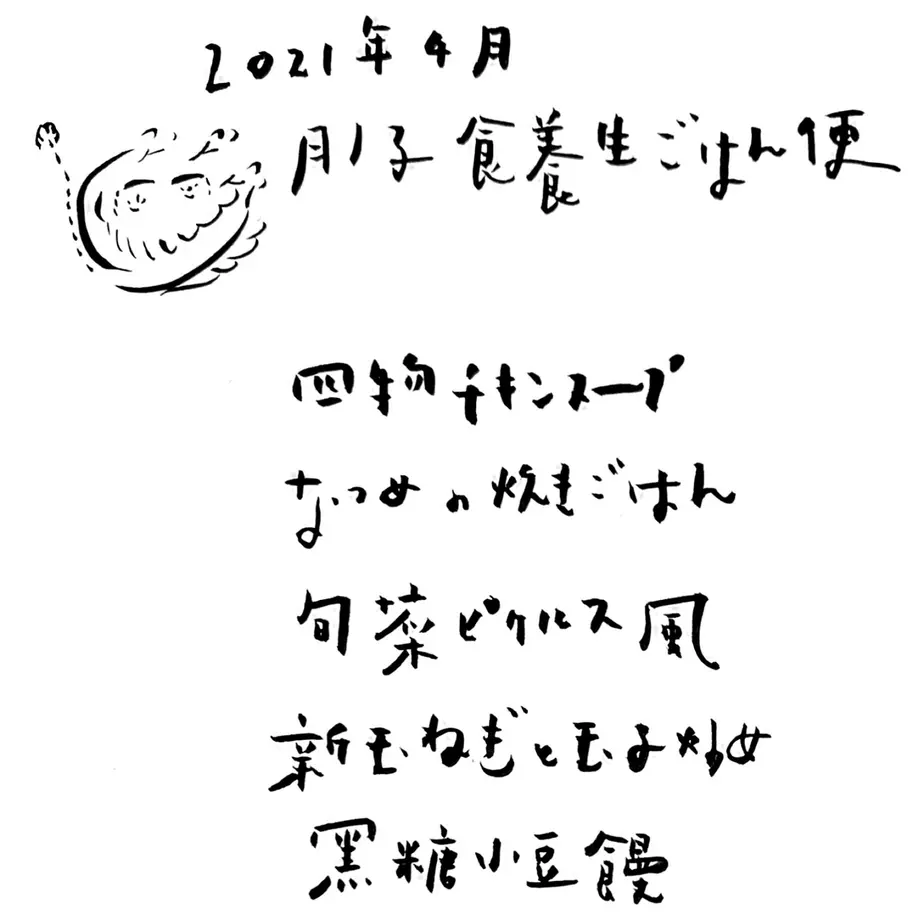 2021年4月
月ノ子食養生ごはん便
四物チキンスープ
なつめの炊きごはん
旬菜ピクルス風
新玉ねぎと玉子炒め
黒糖小豆饅